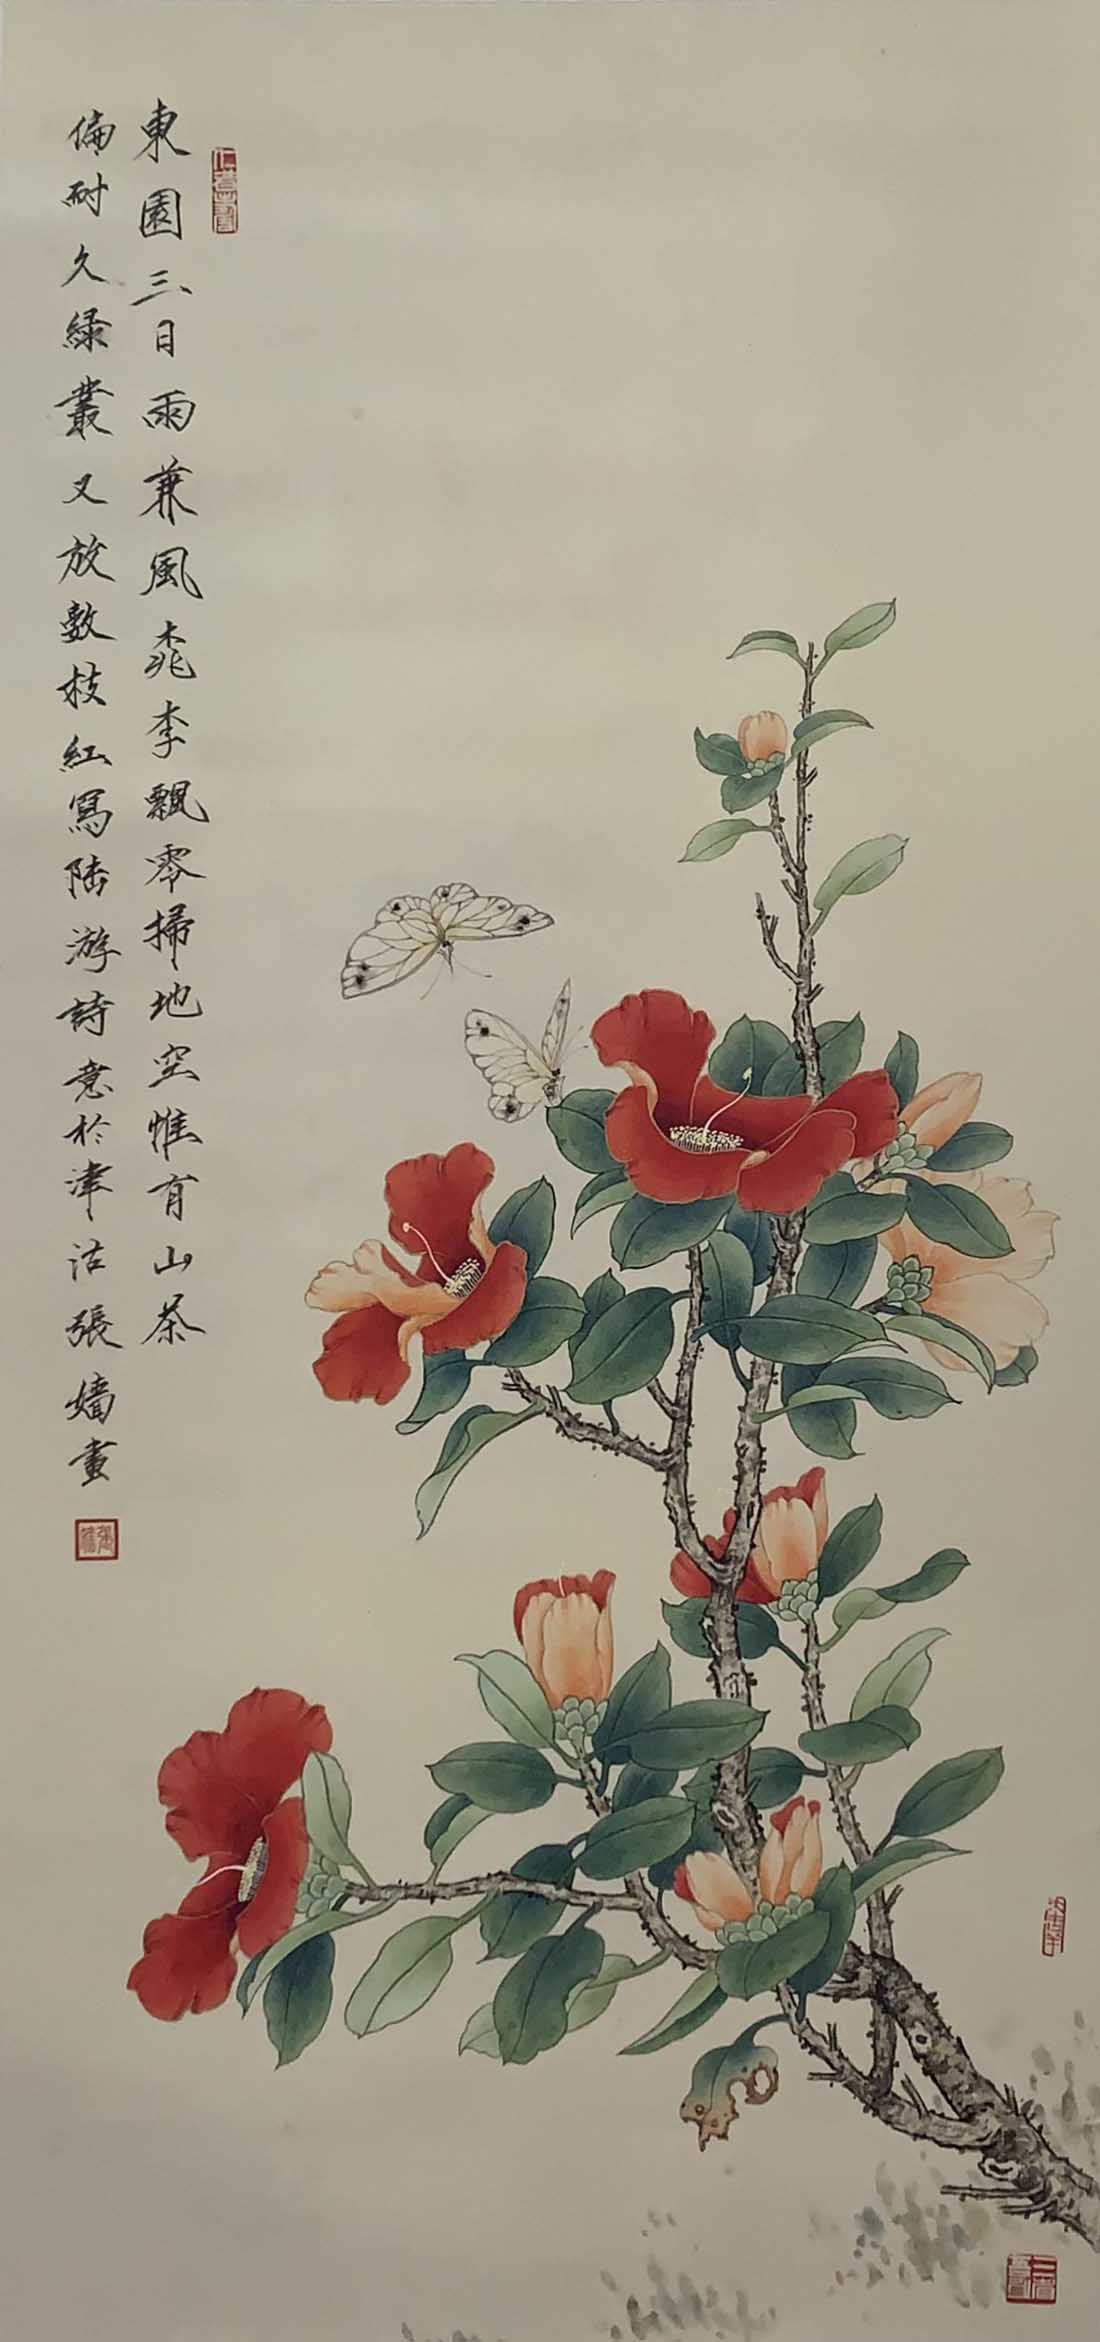 東園三日雨兼風桃李飄零掃地空惟有山茶
偏耐久綠叢又放數枝紅寫陸游詩意於津沽張嬙畫